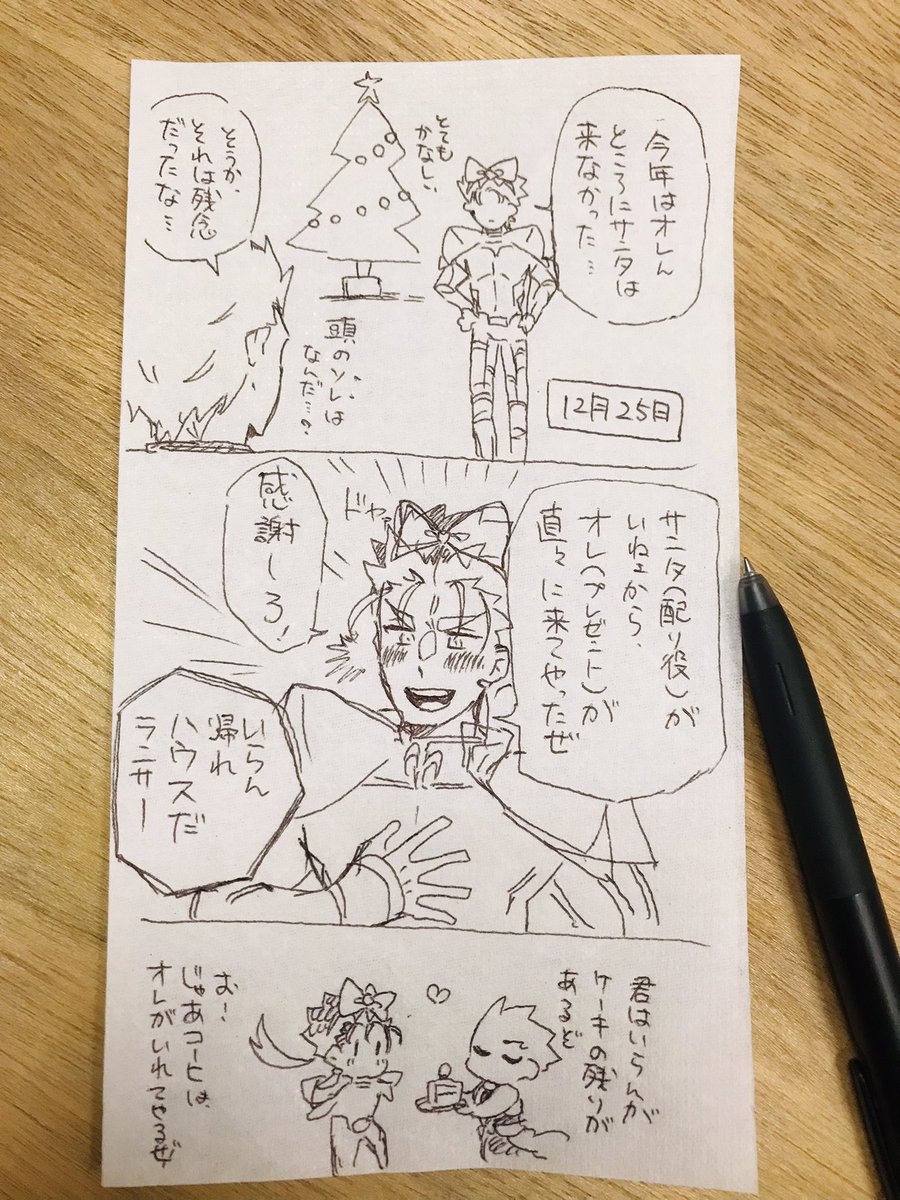 今年はオレん
ところにサンタは
来なかった…
とても
かなしい
そうか、
それは残念
だったな…
頭のソレは
なんだ…?
12月25日
サンタ(配り役)が
いねェから、
オレ(プレゼント)が
直々に来てやったぜ
ドヤッ
感謝しろ!
いらん
帰れ
ハウスだ
ランサー
君はいらんが
ケーキの残りが
あるぞ
お〜
じゃあコーヒーは、
オレがいれてやるぜ